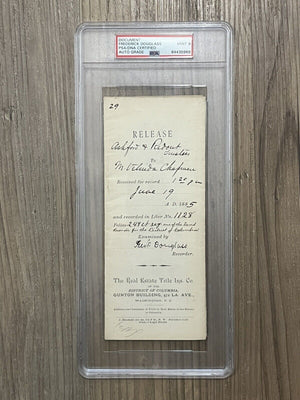 DOCUMENT
FREDERICK DOUGLASS
PSA/DNA CERTIFIED
AUTO GRADE
MINT 9
84435969
29
RELEASE
Ashford & Ridout
Trustees
To
M Velinda Chapman
Received for record 1 20 p m
June 19
A. D. 1885
and recorded in Liber No. 1128
Folios 248 et seq one of the land
Records for the District of Columbia
Examined by
Fredk Douglass
Recorder.
The Real Estate Title Ins. Co.
OF THE
DISTRICT OF COLUMBIA,
GUNTON BUILDING, 472 LA. AVE.
WASHINGTON, D. C.